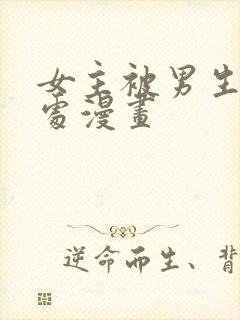 女主被男生
處漫畫
逆命而生、背